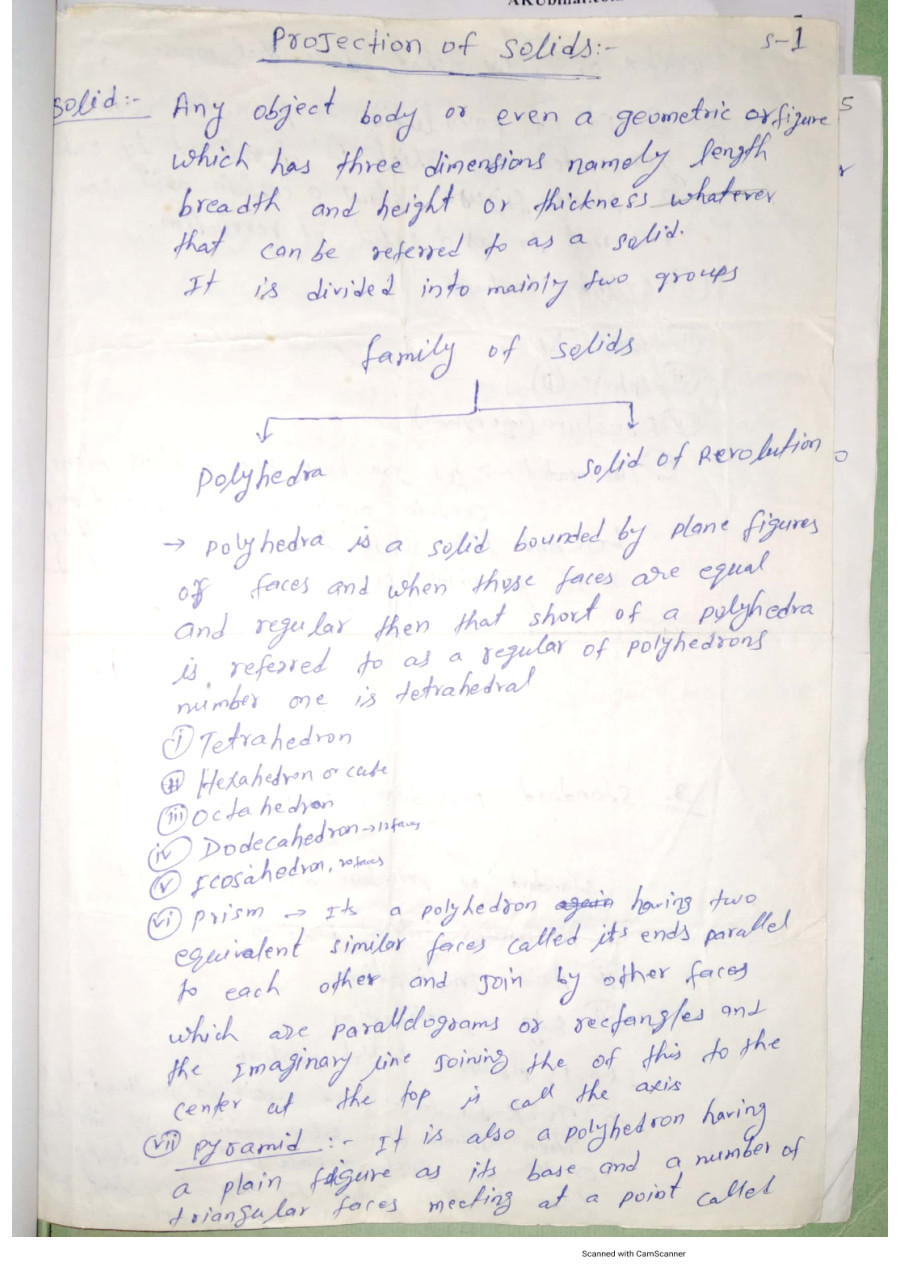 Projection of solids:-
S-1
Solid:- Any object body or even a geometric or figure
which has three dimensions namely length
breadth and height or thickness whatever
that can be referred to as a solid.
It is divided into mainly two groups
family of solids
Polyhedra
Solid of Revolution
→ polyhedra is a solid bounded by plane figures
of faces and when those faces are equal
and regular then that short of a polyhedra
is referred to as a regular of polyhedrons
number one is tetrahedral
(i) Tetrahedron
(ii) Hexahedron or cube
(iii) Octahedron
(iv) Dodecahedron → 12 faces
(v) Icosahedron, 20 faces
(vi) prism → Its a polyhedron again having two
equivalent similar faces called its ends parallel
to each other and join by other faces
which are paralldograms or rectangles and
the Imaginary line joining the of this to the
center at the top is call the axis
(vii) pyramid :- It is also a polyhedron having
a plain figure as its base and a number of
triangular faces meeting at a point called
Scanned with CamScanner